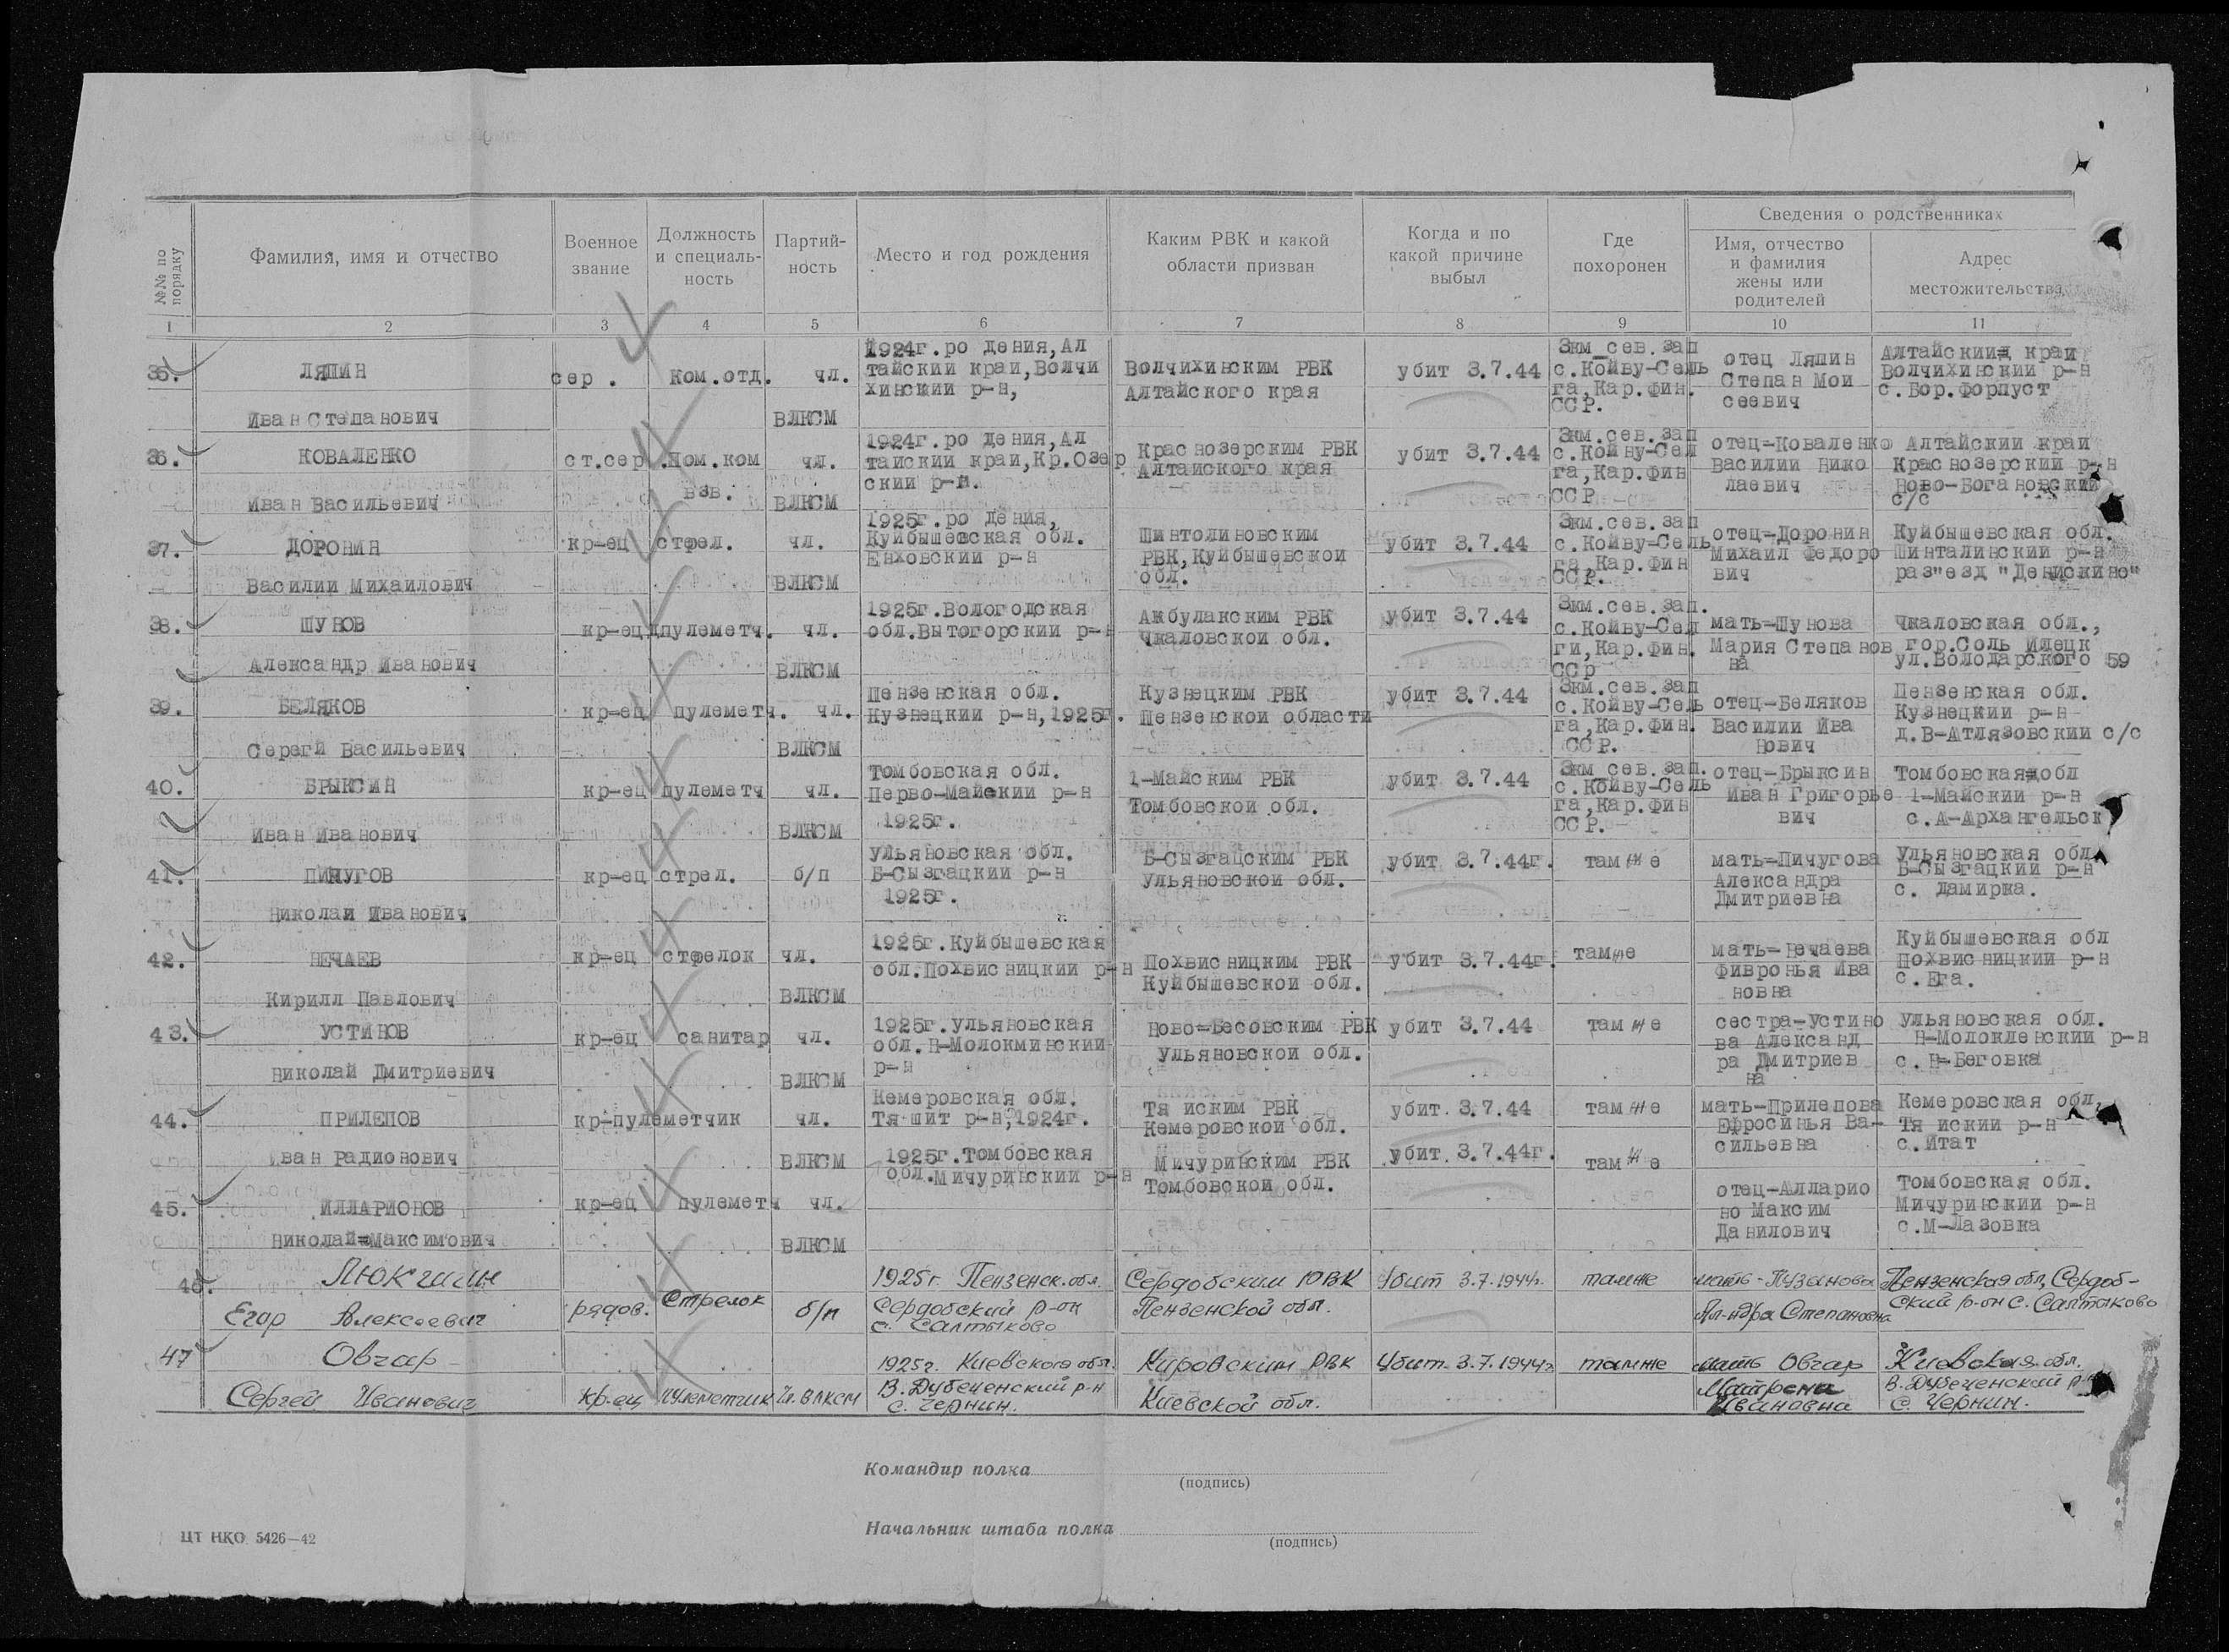 Сведения о родственниках
№№ по порядку
Фамилия, имя и отчество
Военное звание
Должность и специаль-ность
Партий-ность
Место и год рождения
Каким РВК и какой области призван
Когда и по какой причине выбыл
Где похоронен
Имя, отчество и фамилия жены или родителей
Адрес местожительства
1 2 3 4 5 6 7 8 9 10 11
35. ЛЯПИН
Иван Степанович
сер. Ком.отд. чл.
ВЛКСМ
1924г.ро дения,Ал
тайский край,Волчи
хинский р-н,
Волчихинским РВК
Алтайского края
убит 3.7.44
3км сев.зап
с.Койву-Сель
га,Кар.фин.
ССР.
отец Ляпин
Степан Мои
сеевич
Алтайский край
Волчихинский р-н
с.Бор.Форпуст
36. КОВАЛЕНКО
Иван Васильевич
ст.сер. Пом.ком
взв.
чл.
ВЛКСМ
1924г.ро дения,Ал
тайский край,Кр.Озер
ский р-н.
Краснозерским РВК
Алтайского края
убит 3.7.44
3км.сев.зап
с.Койву-Сел
га,Кар.фин
ССР
отец-Коваленко
Василий Нико
лаевич
Алтайский край
Краснозерский р-н
Ново-Богановский
с/с
37. ДОРОНИН
Василий Михайлович
кр-ец стрел. чл.
ВЛКСМ
1925г.ро дения,
Куйбышевская обл.
Елховский р-н
Шинтолиновским
РВК,Куйбышевской
обл.
убит 3.7.44
3км.сев.зап
с.Койву-Сель
га,Кар.фин
ССР.
отец-Доронин
Михаил Федоро
вич
Куйбышевская обл.
Шинталинский р-н
раз"езд "Денискино"
38. ШУНОВ
Александр Иванович
кр-ец пулеметч. чл.
ВЛКСМ
1925г.Вологодская
обл.Вытогорский р-н
Акбулакским РВК
Чкаловской обл.
убит 3.7.44
3км.сев.зап.
с.Койву-Сел
ги,Кар.фин.
ССР
мать-Шунова
Мария Степанов
на
Чкаловская обл.,
гор.Соль Илецк
ул.Володарского 59
39. БЕЛЯКОВ
Серегй Васильевич
кр-ец пулеметч. чл.
ВЛКСМ
Пензенская обл.
Кузнецкий р-н,1925г.
Кузнецким РВК
Пензенской области
убит 3.7.44
3км.сев.зап
с.Койву-Сель
га,Кар.фин.
ССР.
отец-Беляков
Василий Ива
нович
Пензенская обл.
Кузнецкий р-н
д.В-Атлязовский с/с
40. БРЫКСИН
Иван Иванович
кр-ец пулеметч чл.
ВЛКСМ
Томбовская обл.
Перво-Майский р-н
1925г.
1-Майским РВК
Томбовской обл.
убит 3.7.44
3км сев.зап.
с.Койву-Сель
га,Кар.фин
ССР.
отец-Брыксин
Иван Григорье
вич
Томбовская обл
1-Майский р-н
с.А-Архангельск
41. ПИЧУГОВ
Николай Иванович
кр-ец стрел. б/п
Ульяновская обл.
Б-Сызгацкий р-н
1925г.
Б-Сызгацским РВК
Ульяновской обл.
убит 3.7.44г.
там же
мать-Пичугова
Александра
Дмитриевна
Ульяновская обл.
Б-Сызгацкий р-н
с. Дамирка.
42. НЕЧАЕВ
Кирилл Павлович
кр-ец стрелок чл.
ВЛКСМ
1925г.Куйбышевская
обл.Похвисницкий р-н
Похвисницким РВК
Куйбышевской обл.
убит 3.7.44г.
там же
мать-Нечаева
Фивронья Ива
новна
Куйбышевская обл
Похвисницкий р-н
с.Ега.
43. УСТИНОВ
Николай Дмитриевич
кр-ец санитар чл.
ВЛКСМ
1925г.Ульяновская
обл.Н-Молокминский
р-н
Ново-Бесовским РВК
Ульяновской обл.
убит 3.7.44
там же
сестра-Устино
ва Александ
ра Дмитриев
на
Ульяновская обл.
Н-Молокленский р-н
с.Н-Беговка
44. ПРИЛЕПОВ
Иван Радионович
кр-пулеметчик чл.
ВЛКСМ
Кемеровская обл.
Тя шит р-н,1924г.
Тя иским РВК
Кемеровской обл.
убит. 3.7.44
там же
мать-Прилепова
Ефросинья Ва-
сильевна
Кемеровская обл,
Тя иский р-н
с.Итат
45. ИЛЛАРИОНОВ
Николай Максимович
кр-ец пулеметч чл.
ВЛКСМ
1925г.Томбовская
обл.Мичуринский р-н
Мичуринским РВК
Томбовской обл.
убит. 3.7.44г.
там же
отец-Алларио
но Максим
Данилович
Томбовская обл.
Мичуринский р-н
с.М-Лазовка
46. Люкшин
Егор Алексеевич
рядов. Стрелок б/п
1925г. Пензенск.обл.
Сердобский р-он
с. Салтыково
Сердобским РВК
Пензенской обл.
Убит 3.7.1944г.
там же
мать-Пузанова
Ал-ндра Степановна
Пензенская обл, Сердоб-
ский р-он с. Салтыково
47 Овчар
Сергей Иванович
кр.ец пулеметчик Чл. ВЛКСМ
1925г. Киевского обл.
В. Дубеченский р-н
с. Чернин.
Кировским РВК
Киевской обл.
Убит. 3.7.1944г
там же
мать Овчар
Матрена
Ивановна
Киевская обл.
В. Дубеченский р-н
с. Чернин.
Командир полка
(подпись)
Начальник штаба полка
(подпись)
ЦТ НКО 5426—42